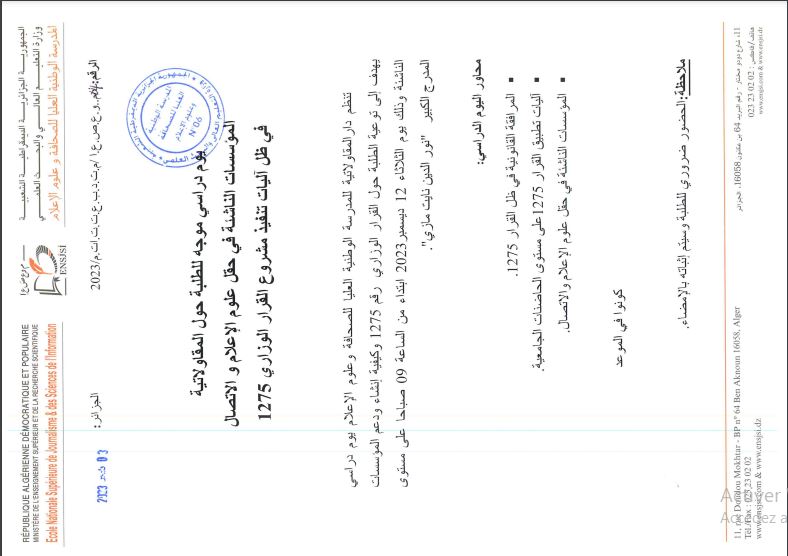 RÉPUBLIQUE ALGÉRIENNE DÉMOCRATIQUE ET POPULAIRE
MINISTÈRE DE L'ENSEIGNEMENT SUPÉRIEUR ET DE LA RECHERCHE SCIENTIFIQUE
Ecole Nationale Supérieure de Journalisme & des Sciences de l'Information
ENSJSI
الجمهوريـــة الجزائريـــة الديمقراطيـــة الشعبيـــة
وزارة التعليـــم العـــالي والبحـــث العلمـــي
المدرسة الوطنية العليا للصحافة و علوم الإعلام
الجزائر:
03 ديسمبر 2023
N°06
يوم دراسي موجه للطلبة حول المقاولاتية
المؤسسات الناشئة في حقل علوم الإعلام و الاتصال
في ظل آليات تنفيذ مشروع القرار الوزاري 1275
تنظم دار المقاولاتية للمدرسة الوطنية العليا للصحافة وعلوم الإعلام يوم دراسي
يهدف إلى توعية الطلبة حول القرار الوزاري رقم 1275 وكيفية إنشاء ودعم المؤسسات
الناشئة وذلك يوم الثلاثاء 12 ديسمبر 2023 ابتداء من الساعة 09 صباحا على مستوى
المدرج الكبير "نور الدين نايت مازي".
محاور اليوم الدراسي:
▪ المرافقة القانونية في ظل القرار 1275.
▪ آليات تطبيق القرار 1275 على مستوى الحاضنات الجامعية.
▪ المؤسسات الناشئة في حقل علوم الإعلام والاتصال.
كونوا في الموعد
ملاحظة: الحضور ضروري للطلبة وسيتم إثباته بالإمضاء.
11, rue Doudou Mokhtar - BP n° 64 Ben Aknoun 16058, Alger
Tel./Fax : 023 23 02 02
www.ensjsi.com & www.ensjsi.dz
11، شارع دودو مختار - رقم البريد 64 بن عكنون 16058، الجزائر
هاتف/فاكس: 02 02 23 023
www.ensjsi.com & www.ensjsi.dz